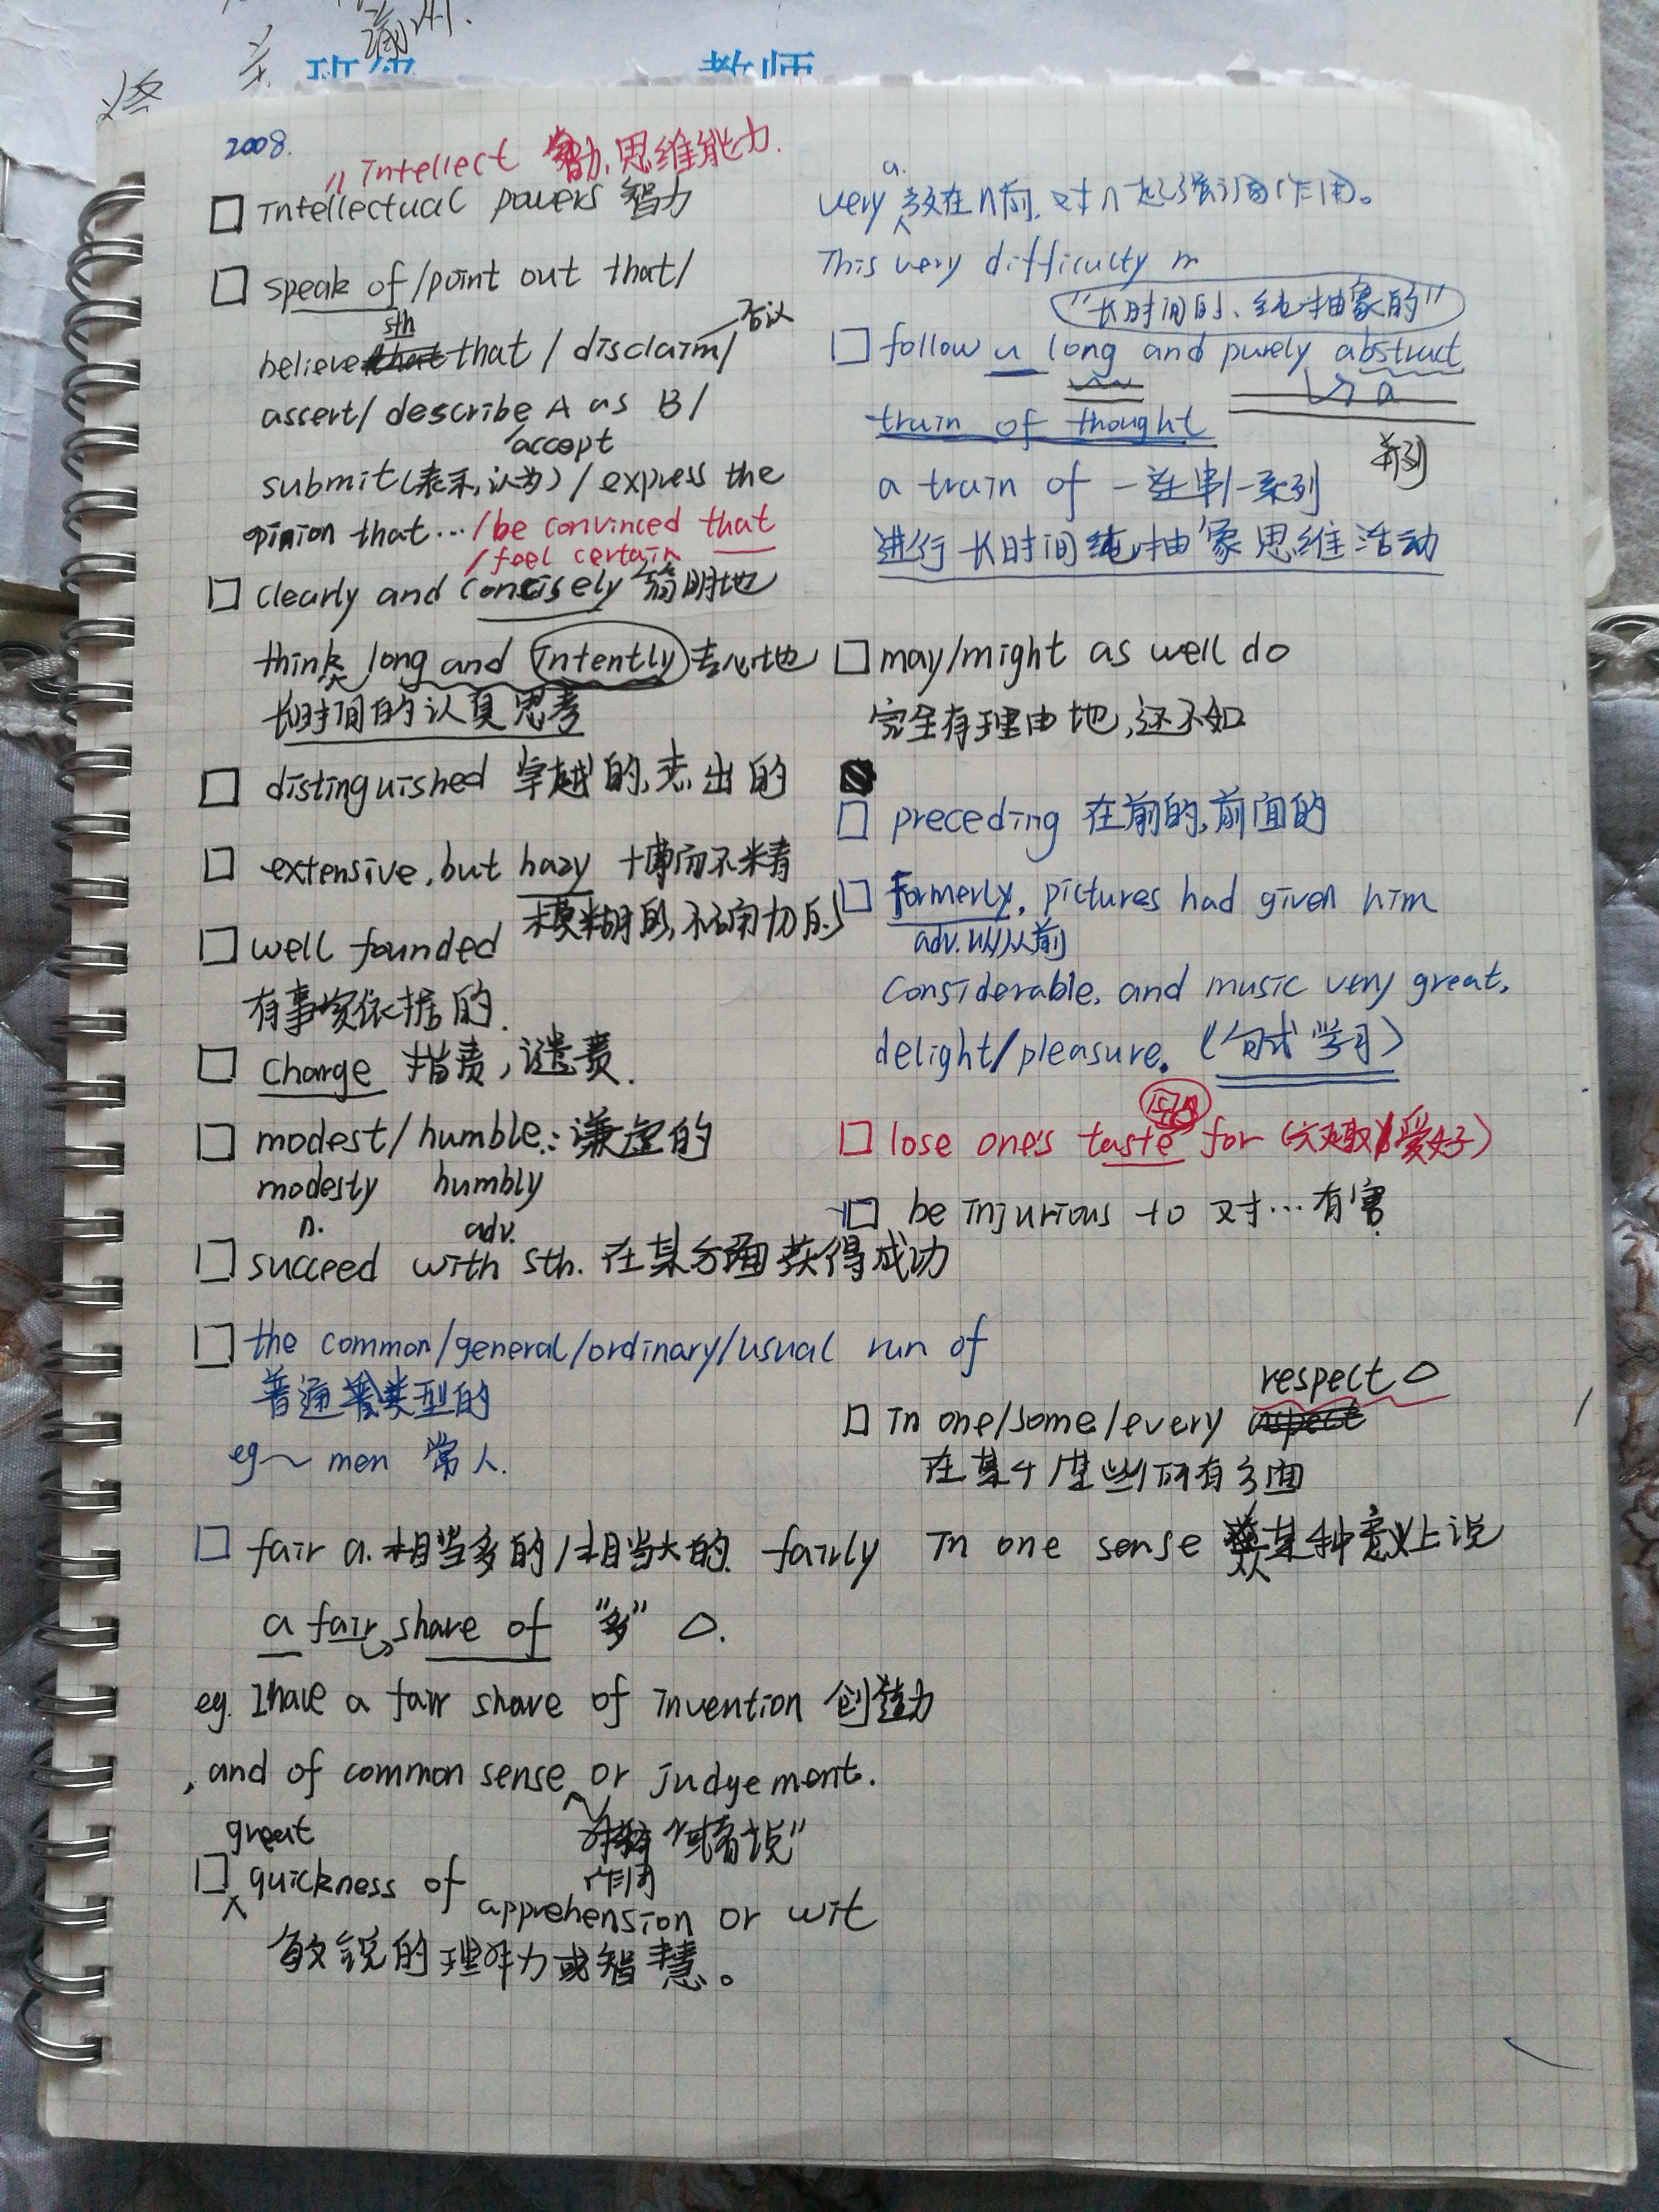 2008.
// Intellect 智力,思维能力.
□ Intellectual powers 智力
□ speak of/point out that/
sth
否认
believe that / disclaim/
assert/ describe A as B/
accept
submit(表示,认为) / express the
opinion that... /be convinced that
/feel certain
□ clearly and concisely 简明地
think long and intently 专心地
长时间的认真思考
□ distinguished 卓越的,杰出的
□ extensive, but hazy 博而不精
模糊的,不确切的
□ well founded
有事实依据的.
□ charge 指责,谴责.
□ modest/humble: 谦虚的
modesty humbly
n. adv.
□ succeed with sth. 在某方面获得成功
□ the common/general/ordinary/usual run of
普遍类型的
eg~ men 常人.
□ fair a. 相当多的/相当大的. fairly
a fair share of "多" △.
eg. I have a fair share of invention 创造力
, and of common sense or judgement.
"或者说"
作同
great
□ quickness of apprehension or wit
敏锐的理解力或智慧。
a.
very 放在n前,对n起强调作用。
This very difficulty
"长时间的、纯抽象的"
□ follow a long and purely abstract
a
train of thought
并列
a train of 一连串/一系列
进行长时间纯抽象思维活动
□ may/might as well do
完全有理由地,还不如
□ preceding 在前的,前面的
□ Formerly, pictures had given him
adv. 从前
considerable, and music very great,
delight/pleasure. (句式学习)
□ lose one's taste for (兴趣/爱好)
□ be injurious to 对…有害
respect △
□ In one/some/every
在某个/某些/所有方面
In one sense 从某种意义上说